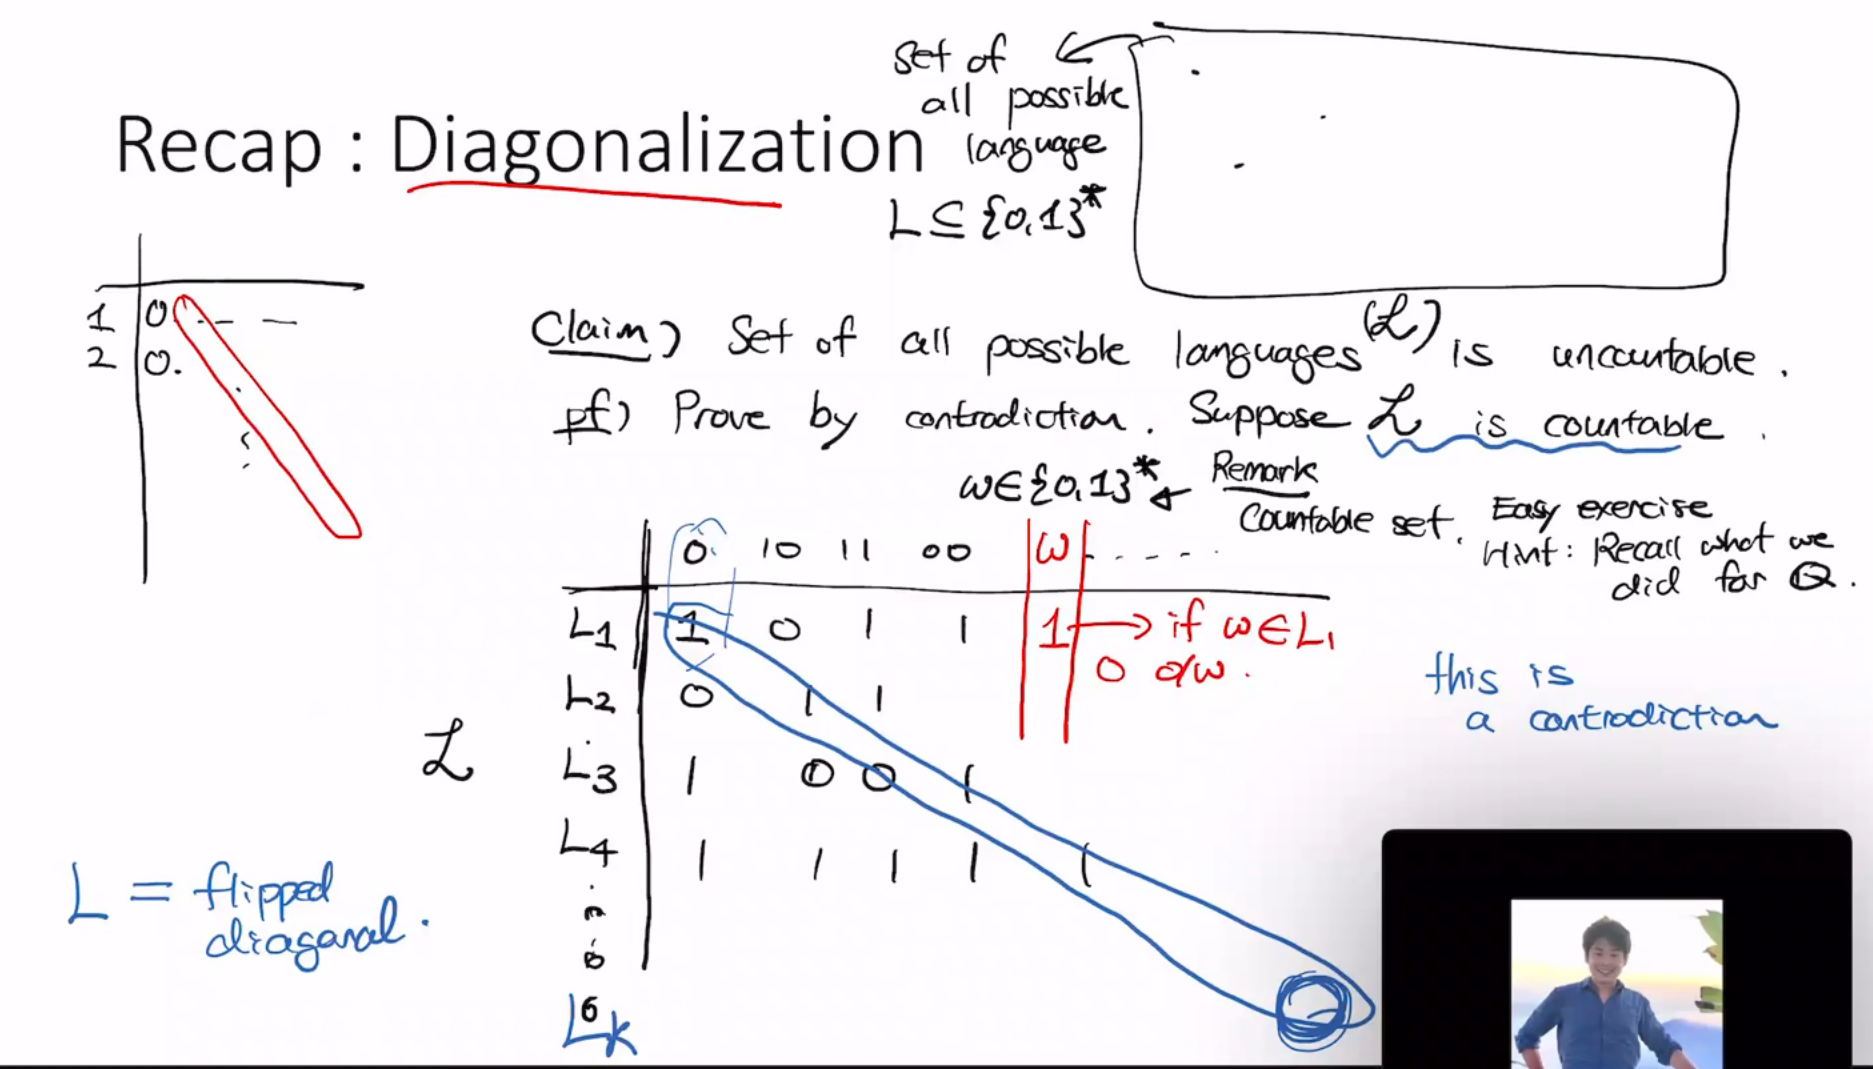 Recap : Diagonalization
set of
all possible
language
L ⊆ {0,1}*
1 0.
2 0.
Claim) Set of all possible languages (ℒ) is uncountable.
pf) Prove by contradiction. Suppose ℒ is countable.
w∈{0,1}* ← Remark
Countable set. Easy exercise
Hint: Recall what we
did for Q.
0 10 11 00 w - - - -
L1 1 0 1 1 1 → if w∈L1
0 o/w.
L2 0 1 1
L3 1 0 0 1
L4 1 1 1 1 1
ℒ
this is
a contradiction
L = flipped
diagonal.
Lk